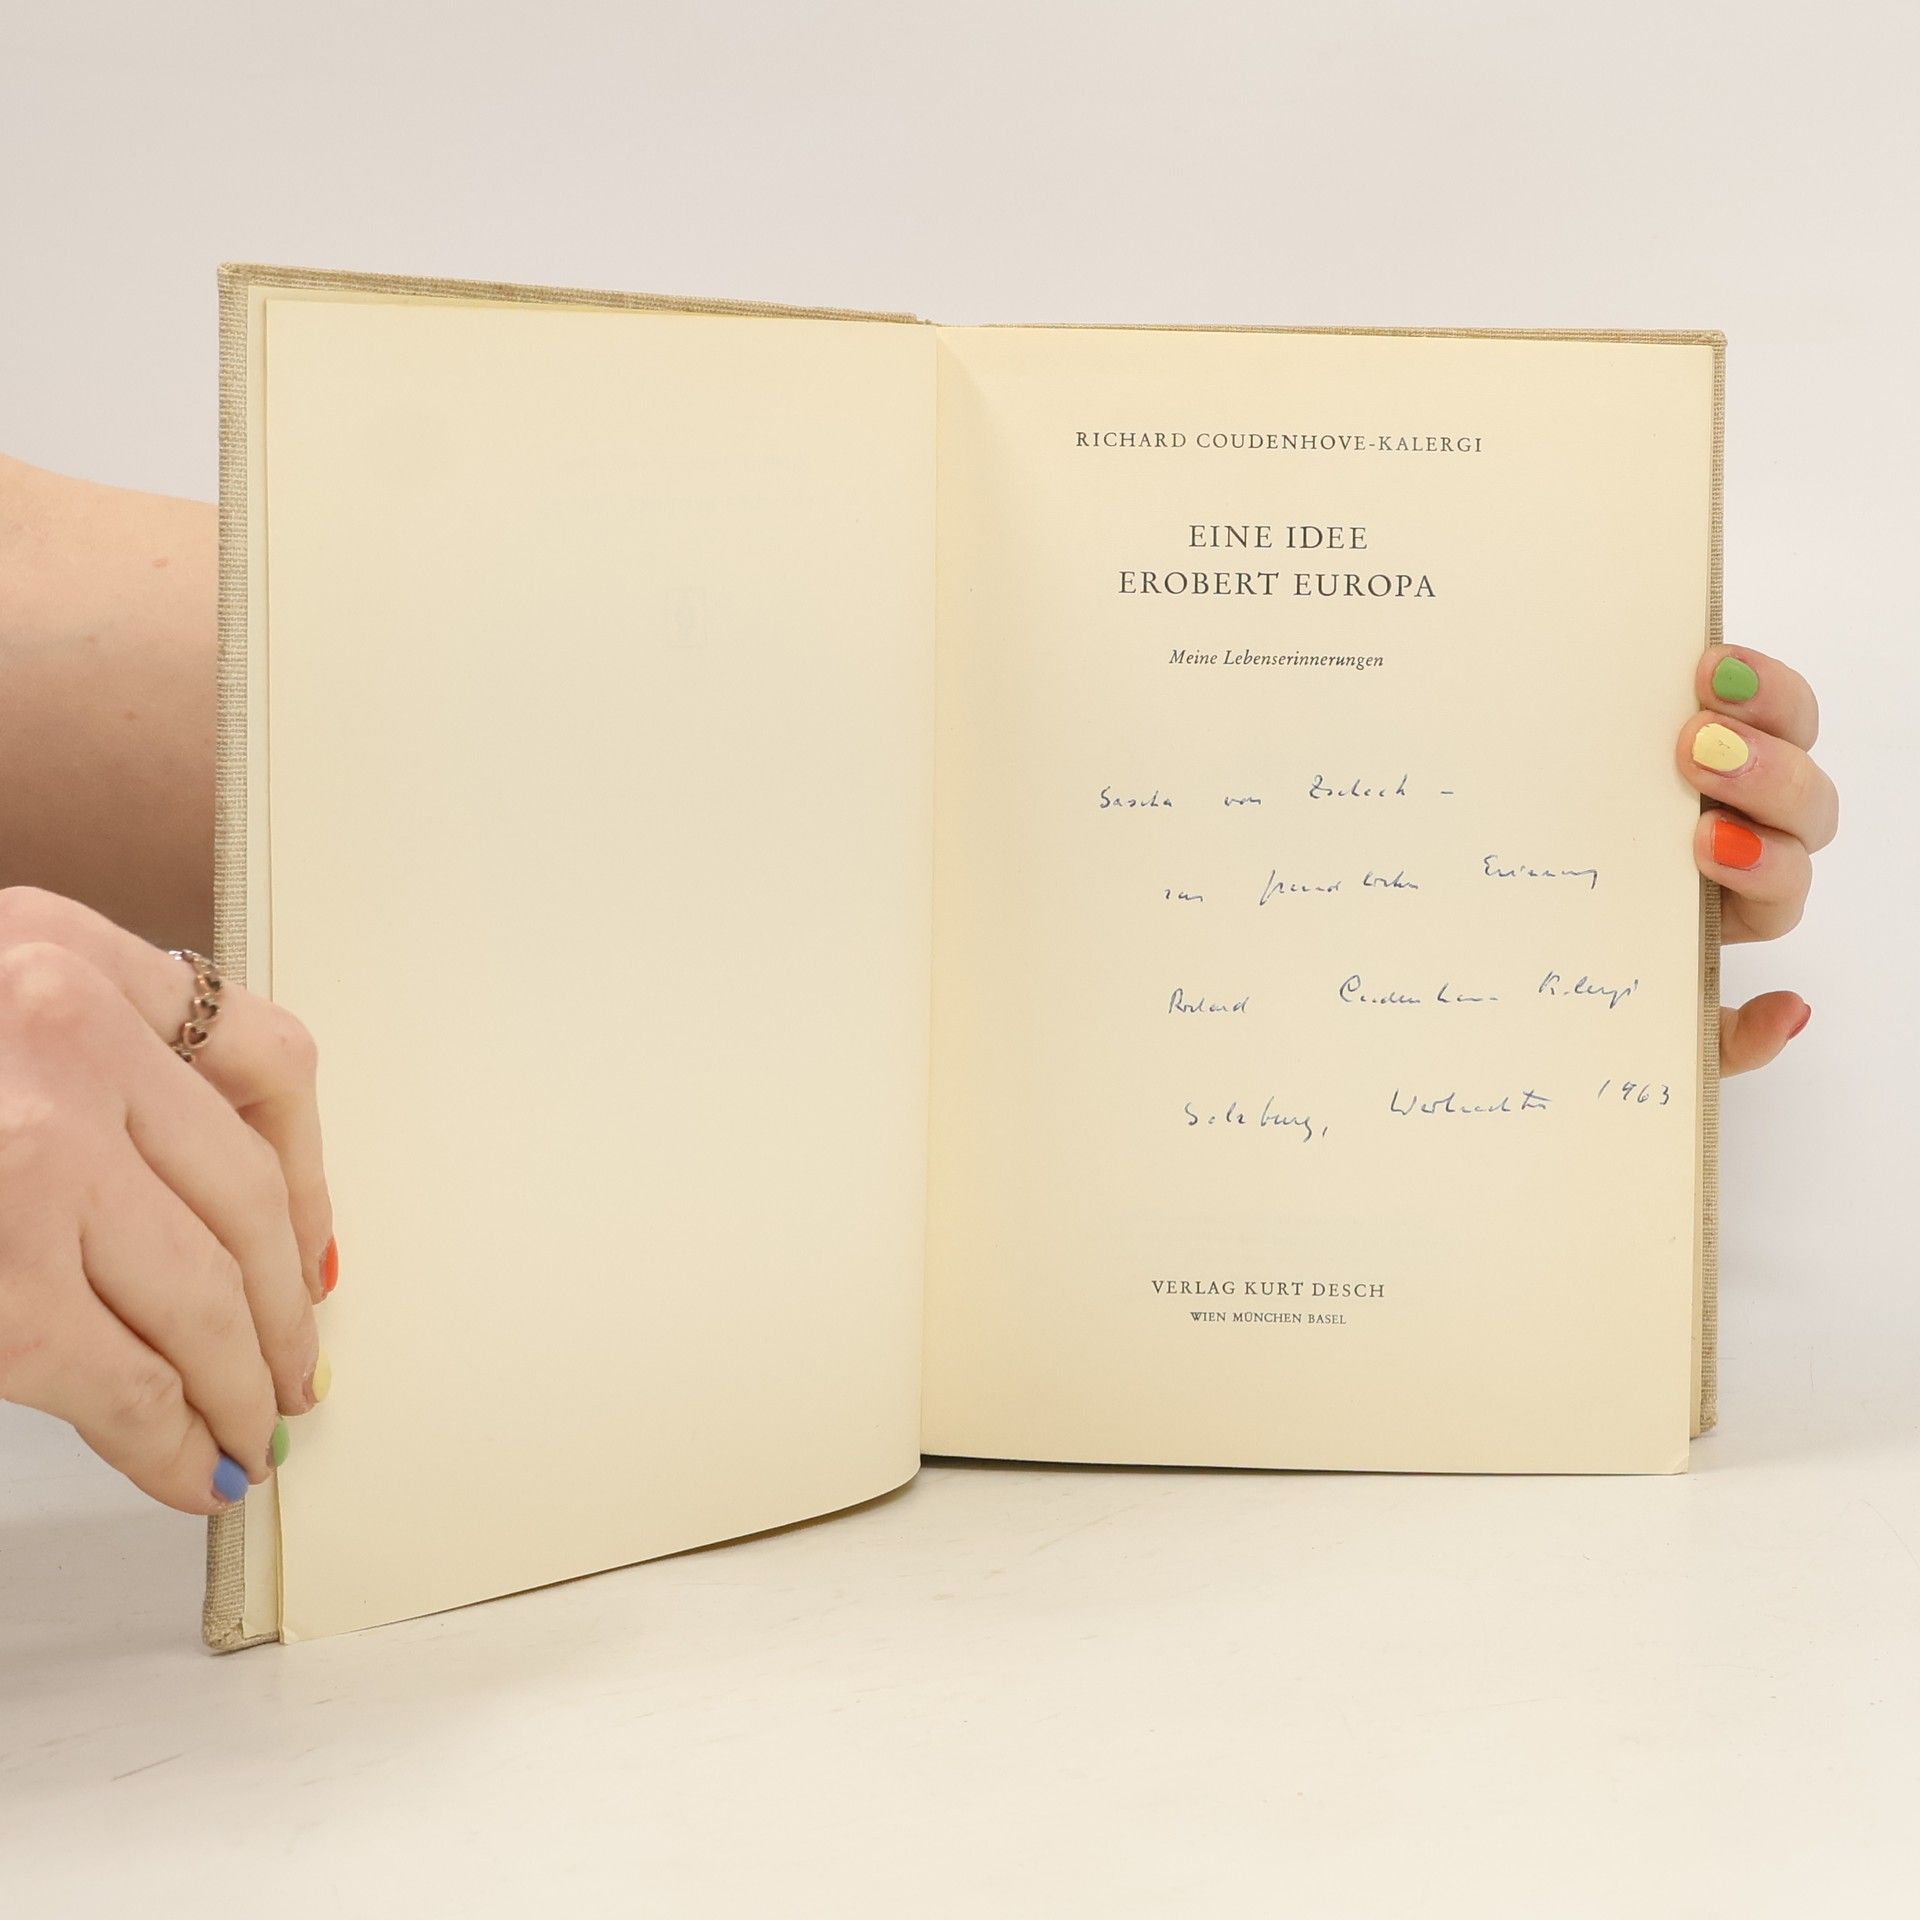 RICHARD COUDENHOVE-KALERGI
EINE IDEE
EROBERT EUROPA
Meine Lebenserinnerungen
Sascha von Zschech –
zur freundlichen Erinnerung
Richard Coudenhove Kalergi
Salzburg, Weihnachten 1963
VERLAG KURT DESCH
WIEN MÜNCHEN BASEL